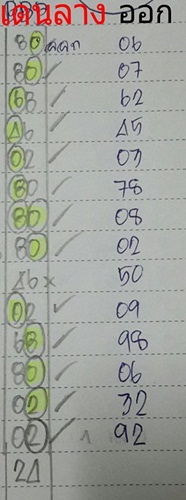 เด่นล่าง ออก
80 ออก 06
80 ✓ 07
68 ✓ 62
46 ✓ 45
02 ✓ 07
80 ✓ 78
80 ✓ 08
80 ✓ 02
46 × 50
02 ✓ 09
68 ✓ 98
80 ✓ 06
02 ✓ 32
02 ✓ 92
24